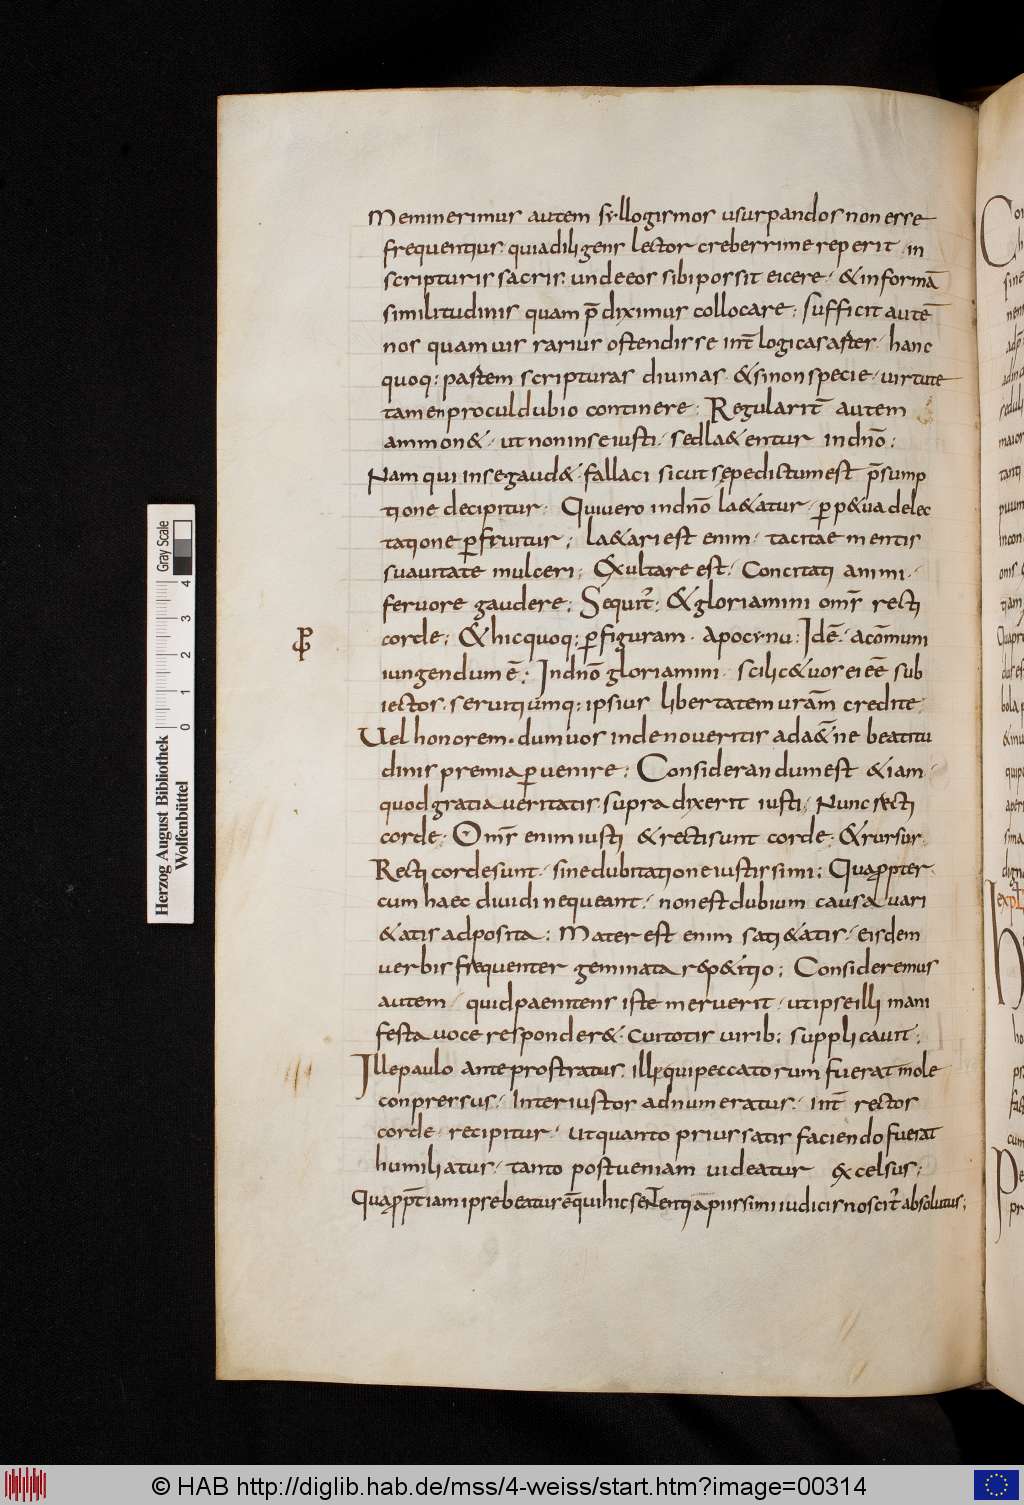 Meminerimus autem syllogismos usurpandos non esse
frequentius. quia diligens lector creberrime reperit in
scripturis sacris. unde eos sibi possit eicere. & in formā
similitudinis quam p̄diximus collocare; sufficit autē
nos quamuis rarius ostendisse int̄ logicas aster. hanc
quoq; partem scripturas diuinas. & si non specie. uirtute
tamen proculdubio continere; Regularit̄ autem
ammon&. ut non in se iusti. sed la&entur in dn̄o;
Nam qui in se gaud&. fallaci sicut sepe dictum est p̄sump
tione decipitur. Qui uero in dn̄o la&atur. ꝑp&ua delec
tatione ꝑfruitur; la&ari est enim. tacitae mentis
suauitate mulceri; Exultare est. Concitati animi.
feruore gaudere; Sequit̄; & gloriamini om̄s recti
corde; & hic quoq; ꝑ figuram. apocynu; Idē. a cōmuni
iungendum ē; In dn̄o gloriamini. scilic& uos ei eē sub
iectos. seruitiumq; ipsius libertatem urām credite.
Uel honorem. dum uos inde noueritis ad a&n̄ae beatitu
dinis premia ꝑuenire; Considerandum est & iam.
quod gratia ueritatis. supra dixerit iusti. Nunc recti
corde. Om̄s enim iusti & recti sunt corde. & rursus.
Recti corde sunt. sine dubitatione iustissimi; Quaꝓpter.
cum haec diuidi nequeant. non est dubium causa uari
&atis adposita; Mater est enim sati&atis. eisdem
uerbis frequenter geminata rep&itio; Consideremus
autem. quid paenitens iste meruerit. ut ipse illi mani
festa uoce responder&. cui totis uirib; supplicauit;
Ille paulo ante prostratus. ille qui peccatorum fuerat mole
conpressus. Inter iustos adnumeratus. int̄ rectos
corde recipitur. ut quanto prius satis faciendo fuerat
humiliatus. tanto post ueniam uideatur excelsus;
Quaꝓpt̄ iam ipse beatur ē qui hic sententia piissimi iudicis noscit̄ absolutus;
Herzog August Bibliothek
Wolfenbüttel
0 1 2 3 4
Gray Scale
© HAB http://diglib.hab.de/mss/4-weiss/start.htm?image=00314